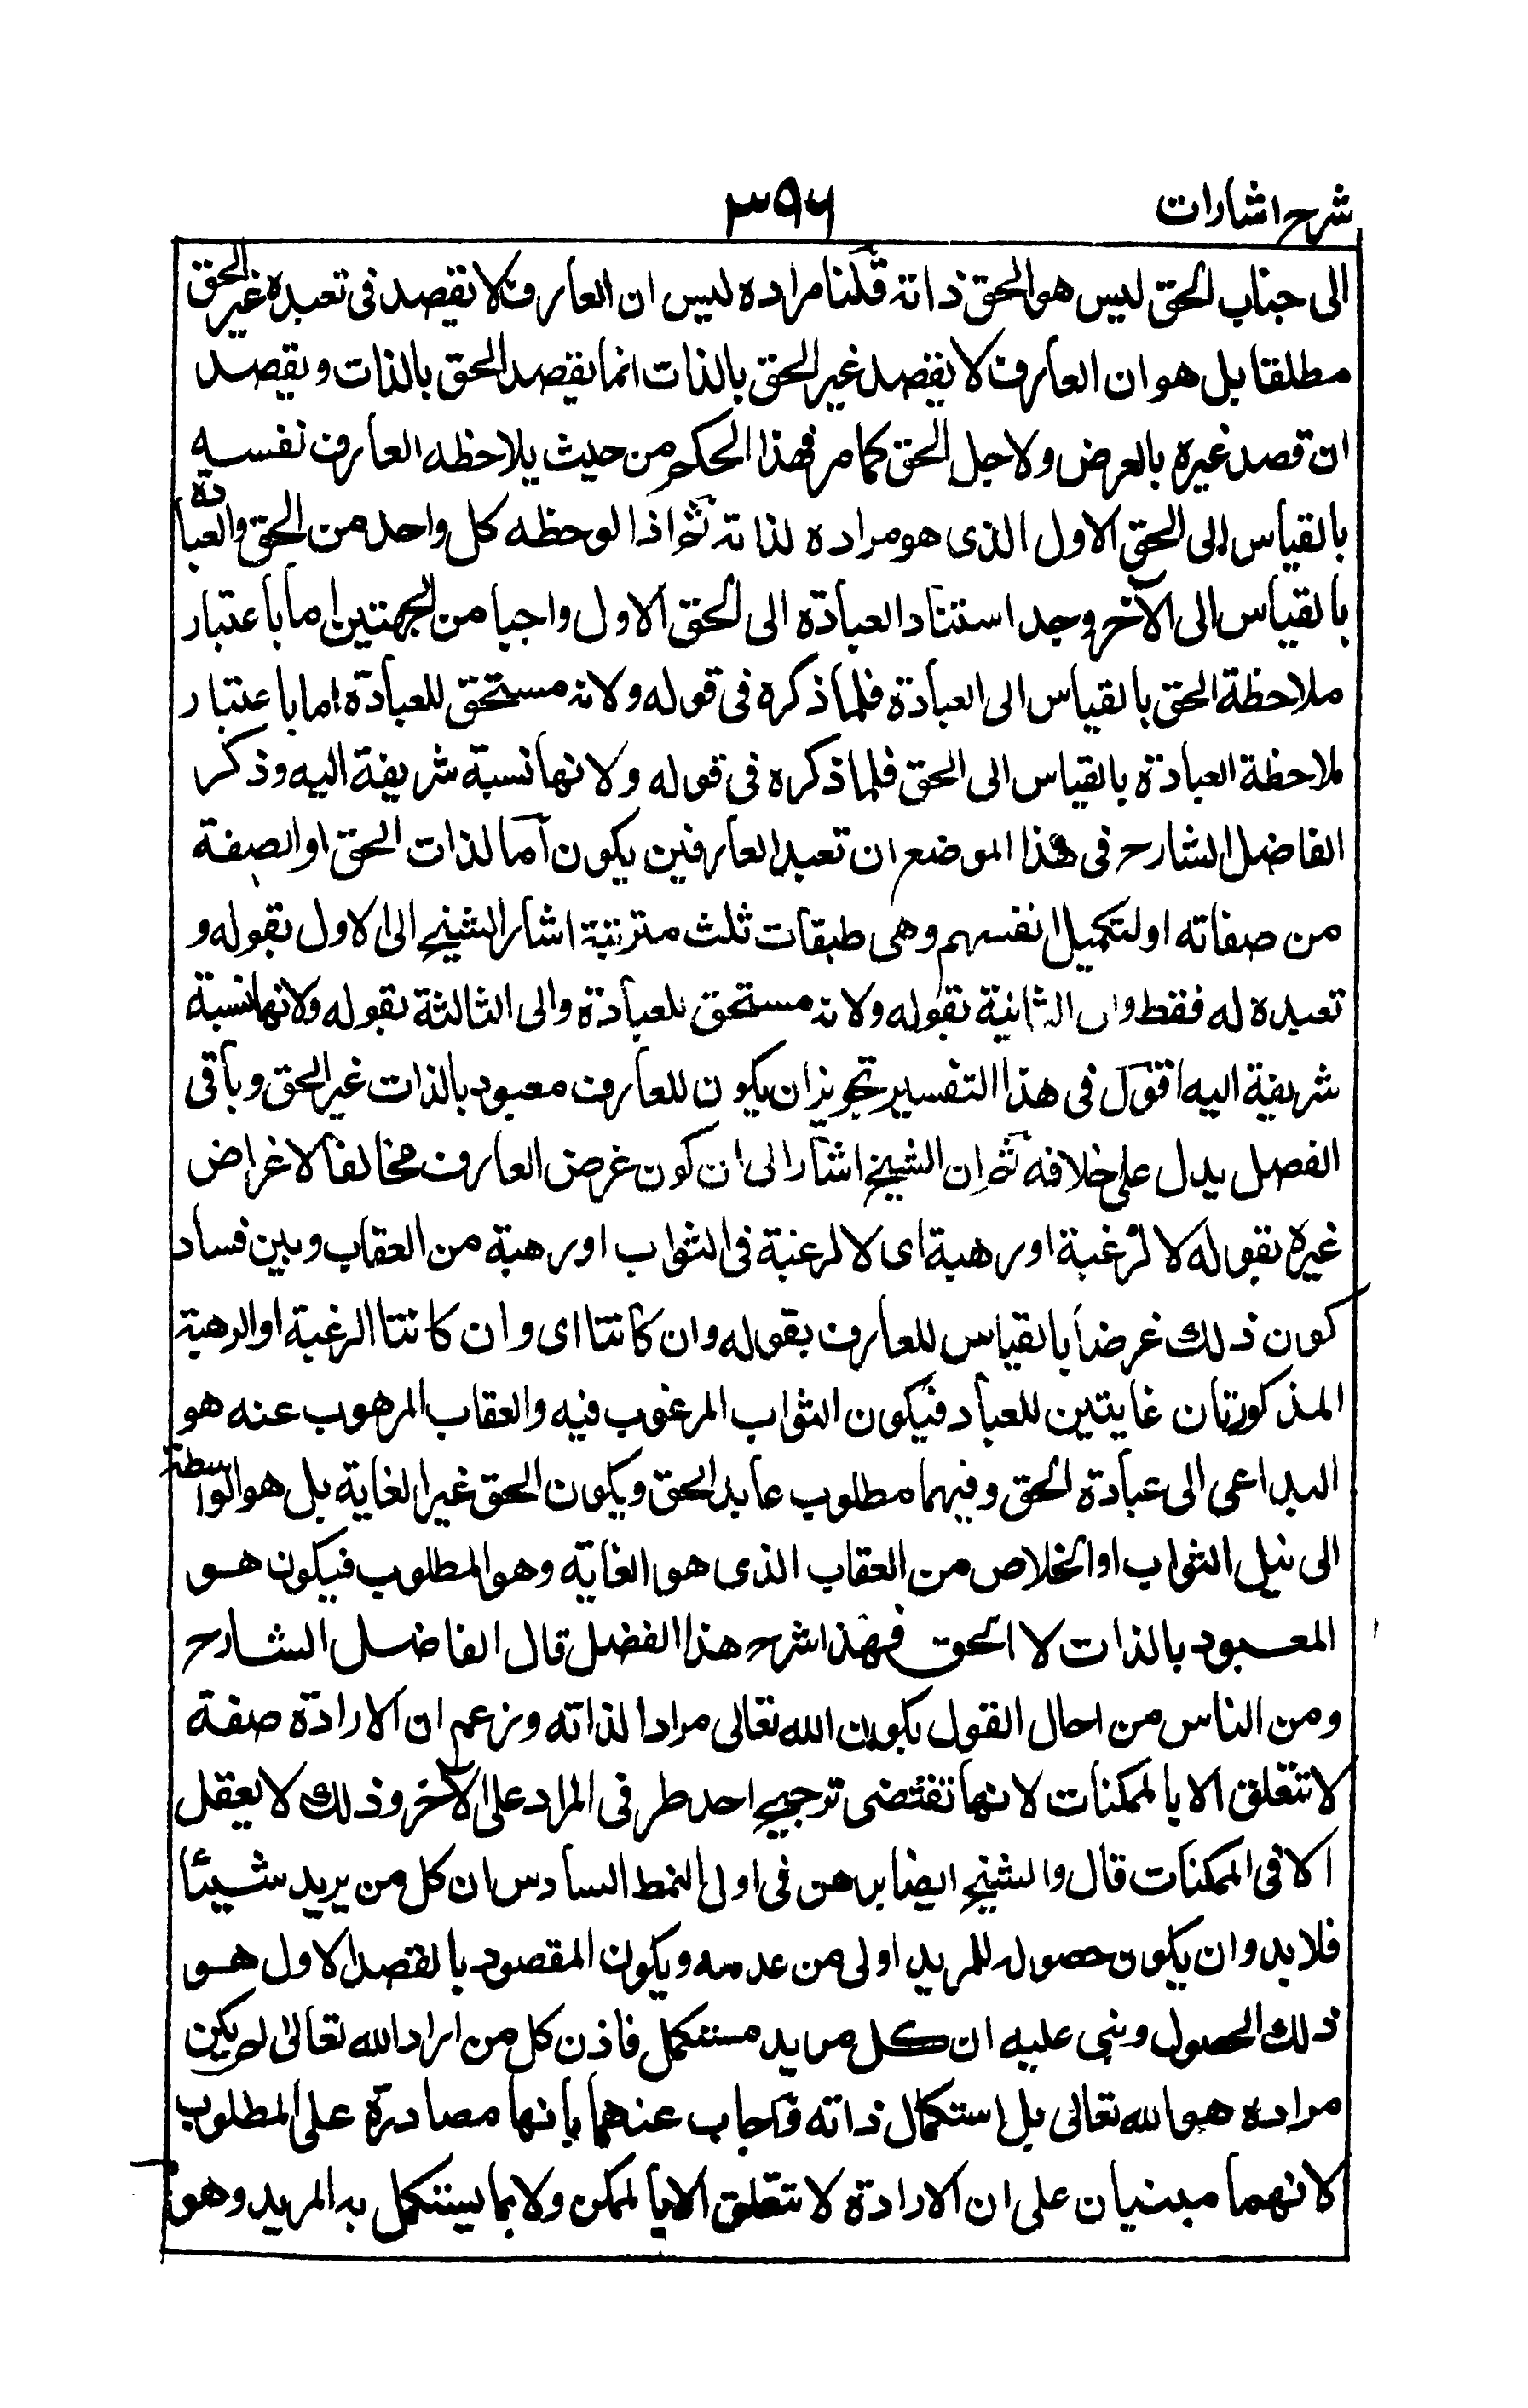 شرح اشارات
۳۹۶
الى جناب الحق ليس هو الحق ذاته قلنا مراده ليس ان العارف لا يقصد فى تعبده غير الحق
مطلقا بل هو ان العارف لا يقصد غير الحق بالذات انما يقصد الحق بالذات و يقصد
ان قصد غيره بالعرض ولاجل الحق كما مر فهذا الحكم من حيث يلاحظه العارف نفسه
بالقياس الى الحق الاول الذى هو مراده لذاته ثم اذا لوحظه كل واحد من الحق والعبادة
بالقياس الى الآخر وجد استناد العبادة الى الحق الاول واجبا من الجهتين اما باعتبار
ملاحظة الحق بالقياس الى العبادة فلما ذكره فى قوله ولانه مستحق للعبادة اما باعتبار
ملاحظة العبادة بالقياس الى الحق فلما ذكره فى قوله ولانها نسبة شريفة اليه وذكر
الفاضل الشارح فى هذا الموضع ان تعبد العارفين يكون اما لذات الحق او لصفة
من صفاته او لتكميل انفسهم وهى طبقات ثلث مترتبة اشار الشيخ الى الاول بقوله و
تعبده له فقط والى الثانية بقوله ولانه مستحق للعبادة والى الثالثة بقوله ولانها نسبة
شريفة اليه اقول فى هذا التفسير تجويز ان يكون للعارف معبود بالذات غير الحق وباقى
الفصل يدل على خلافه ثم ان الشيخ اشار الى ان كون غرض العارف مخالفا لاغراض
غيره بقوله لا لرغبة او رهبة اى لا لرغبة فى الثواب او رهبة من العقاب وبين فساد
كون ذلك غرضا بالقياس للعارف بقوله وان كانتا اى وان كانتا الرغبة او الرهبة
المذكورتان غايتين للعباد فيكون الثواب المرغوب فيه والعقاب المرهوب عنه هو
الداعى الى عبادة الحق وفيهما مطلوب عابد الحق ويكون الحق غير الغاية بل هو الواسطة
الى نيل الثواب او الخلاص من العقاب الذى هو الغاية وهو المطلوب فيكون هو
المعبود بالذات لا الحق فهذا شرح هذا الفصل قال الفاضل الشارح
ومن الناس من احال القول بكون الله تعالى مرادا لذاته وزعم ان الارادة صفة
لا تتعلق الا بالممكنات لانها تقتضى ترجيح احد طرفى المراد على الآخر وذلك لا يعقل
الا فى الممكنات قال والشيخ ايضا برهن فى اول النمط السادس ان كل من يريد شيئا
فلا بد وان يكون حصوله للمريد اولى من عدمه ويكون المقصود بالقصد الاول هو
ذلك الحصول وبنى عليه ان كل مريد مستكمل فاذن كل من اراد الله تعالى لم يكن
مراده هو الله تعالى بل استكمال ذاته واجاب عنهما بانها مصادرة على المطلوب
لانهما مبنيان على ان الارادة لا تتعلق الا بالممكن ولا بما يستكمل به المريد وهو